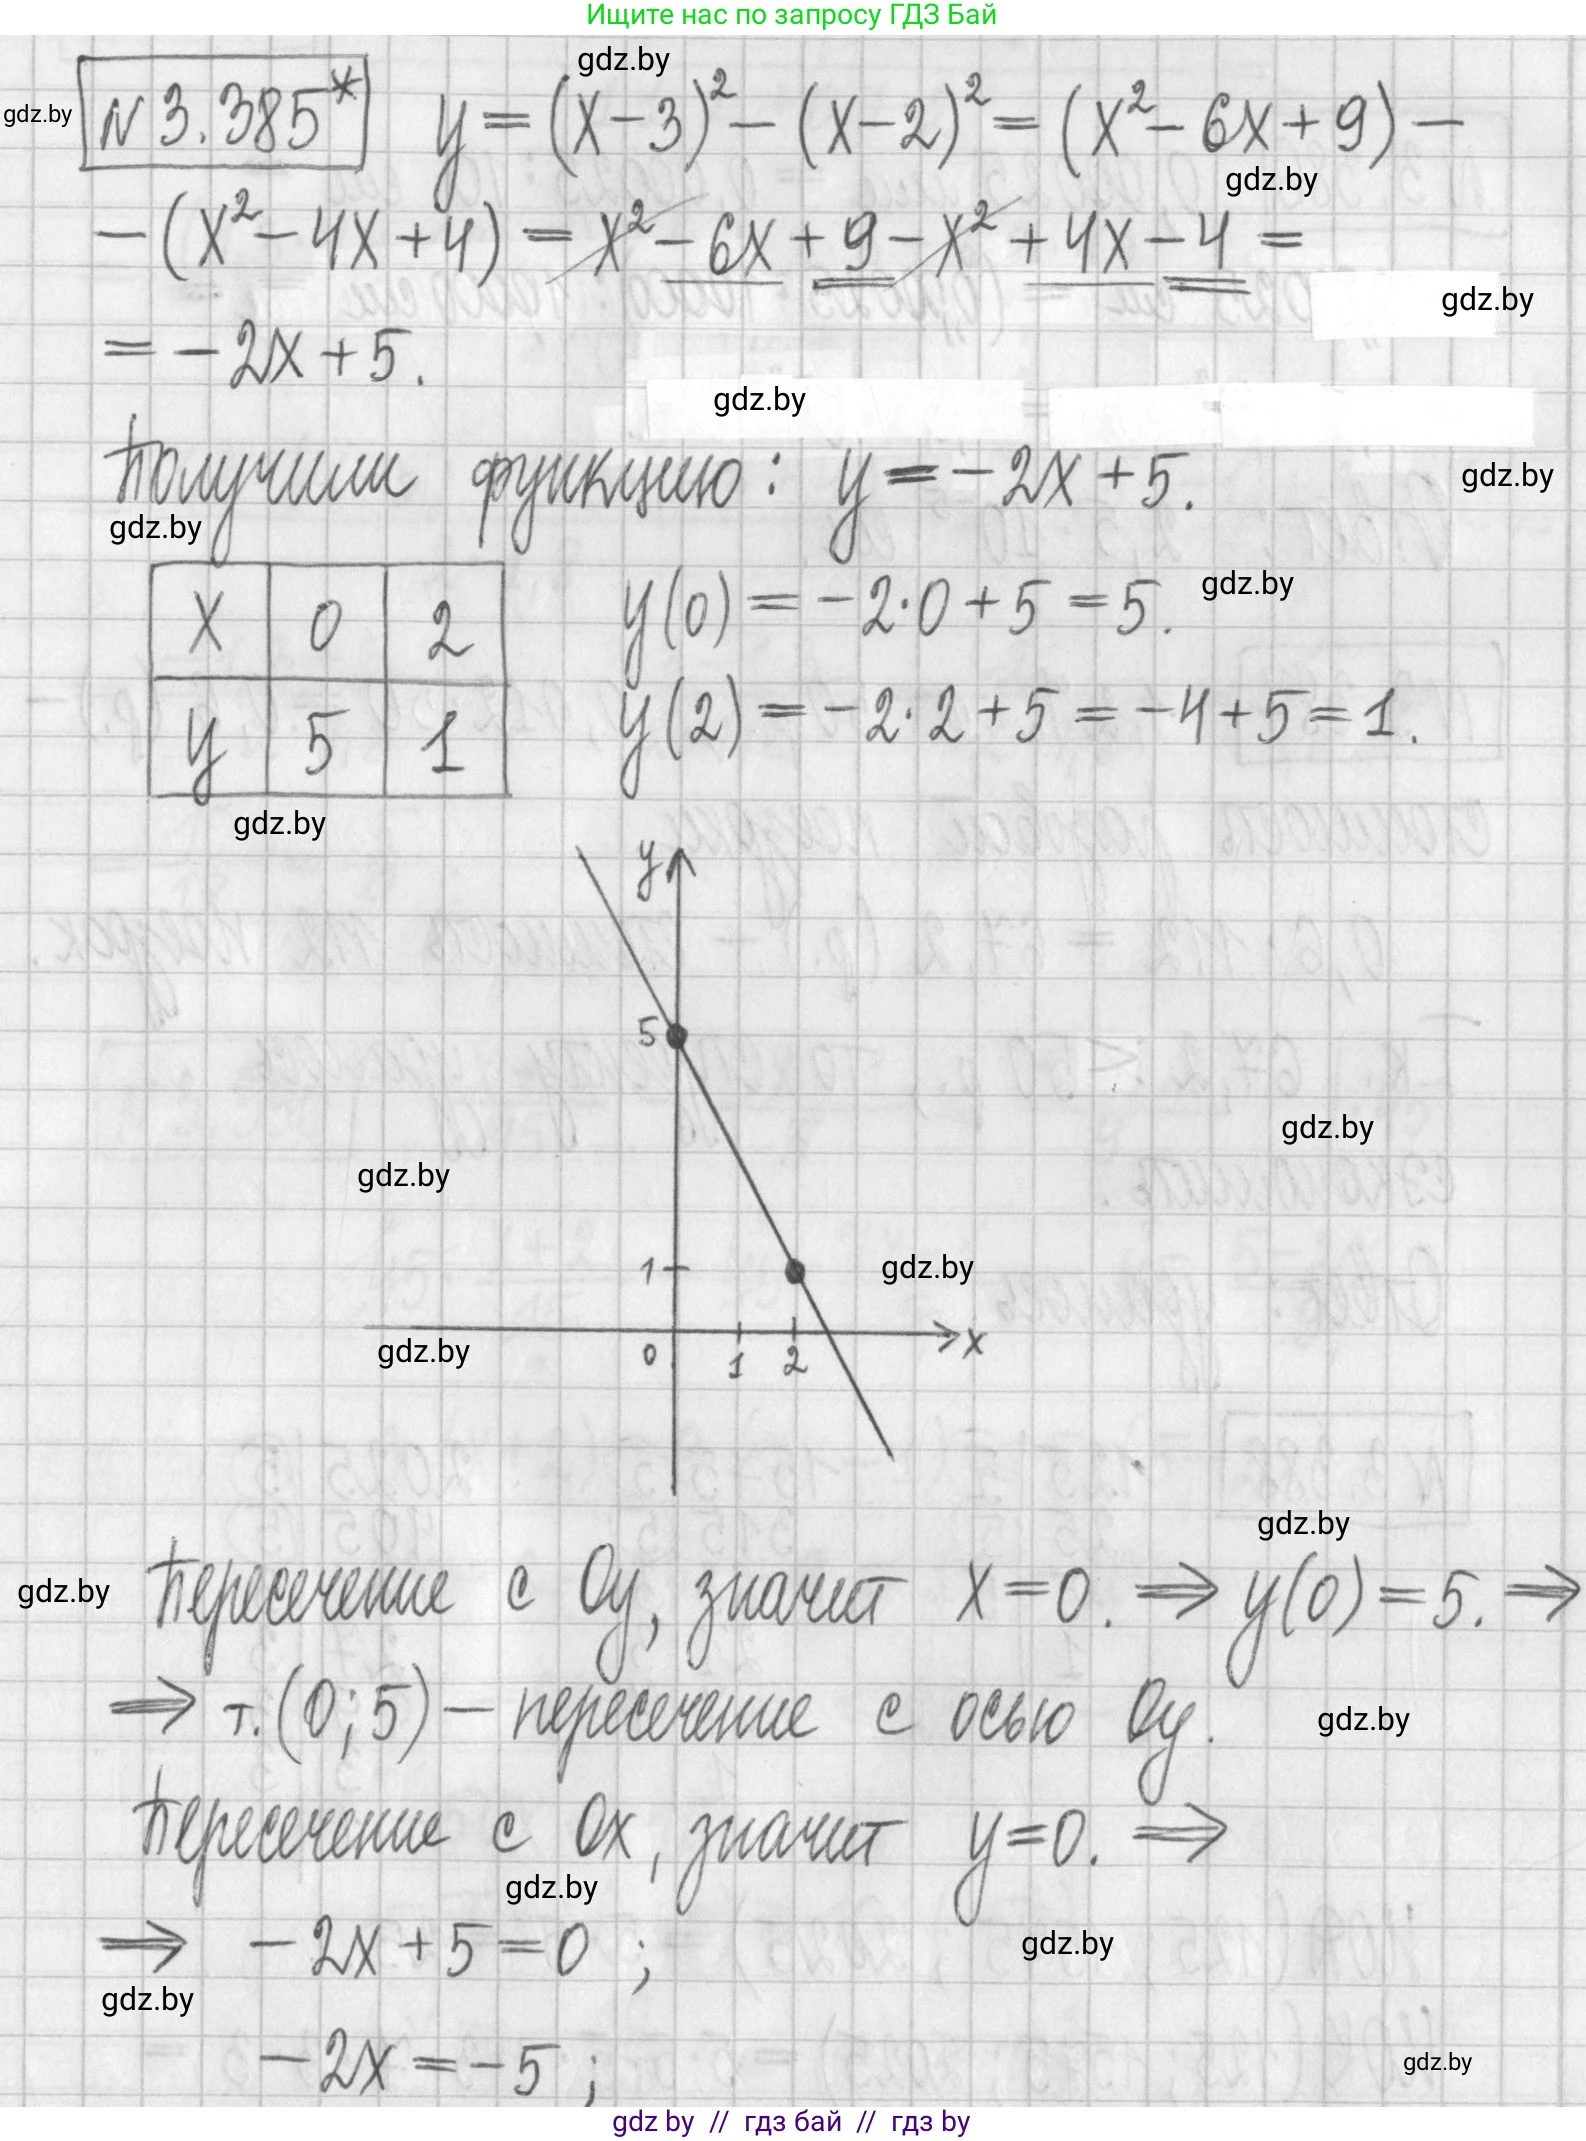 Ищите нас по запросу ГДЗ Бай
gdz.by
gdz.by
N 3.385* y = (x-3)² - (x-2)² = (x² - 6x + 9) -
gdz.by
- (x² - 4x + 4) = x² - 6x + 9 - x² + 4x - 4 =
gdz.by
= - 2x + 5.
gdz.by
Получили функцию: y = - 2x + 5.
gdz.by
gdz.by
x 0 2
y(0) = - 2·0 + 5 = 5.
gdz.by
y 5 1
y(2) = - 2·2 + 5 = - 4 + 5 = 1.
gdz.by
y
5
gdz.by
gdz.by
1
gdz.by
gdz.by
0 1 2 x
gdz.by
gdz.by
Пересечение с Oy, значит x = 0. ⇒ y(0) = 5. ⇒
⇒ т. (0; 5) - пересечение с осью Oy.
gdz.by
Пересечение с Ox, значит y = 0. ⇒
gdz.by
⇒ - 2x + 5 = 0 ;
gdz.by
gdz.by
- 2x = - 5 ;
gdz.by
gdz by // гдз бай // гдз by